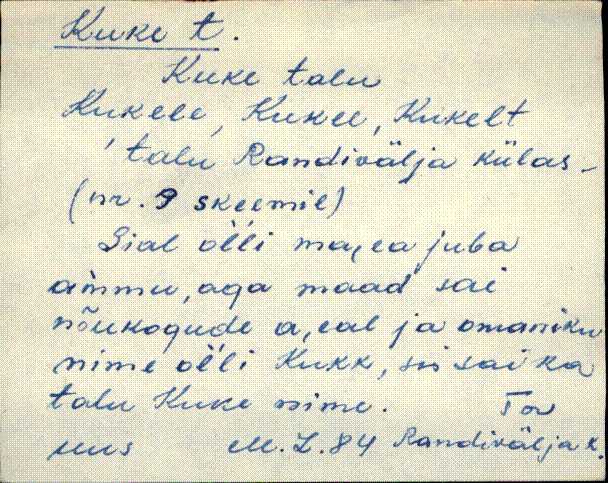 Kuke t.
Kuke talu
Kukele, Kukel, Kukelt
'talu Randivälja külas -
(nr. 9 skeemil)
Sial ol̀li ma,ea juba
aìmmu, aga maad sai
nõukogude a,eal ja omaniku
nime ol̀li Kukk, sis sai ka
talu Kuke nime. Tor
uus M.L.84 Randivälja k.